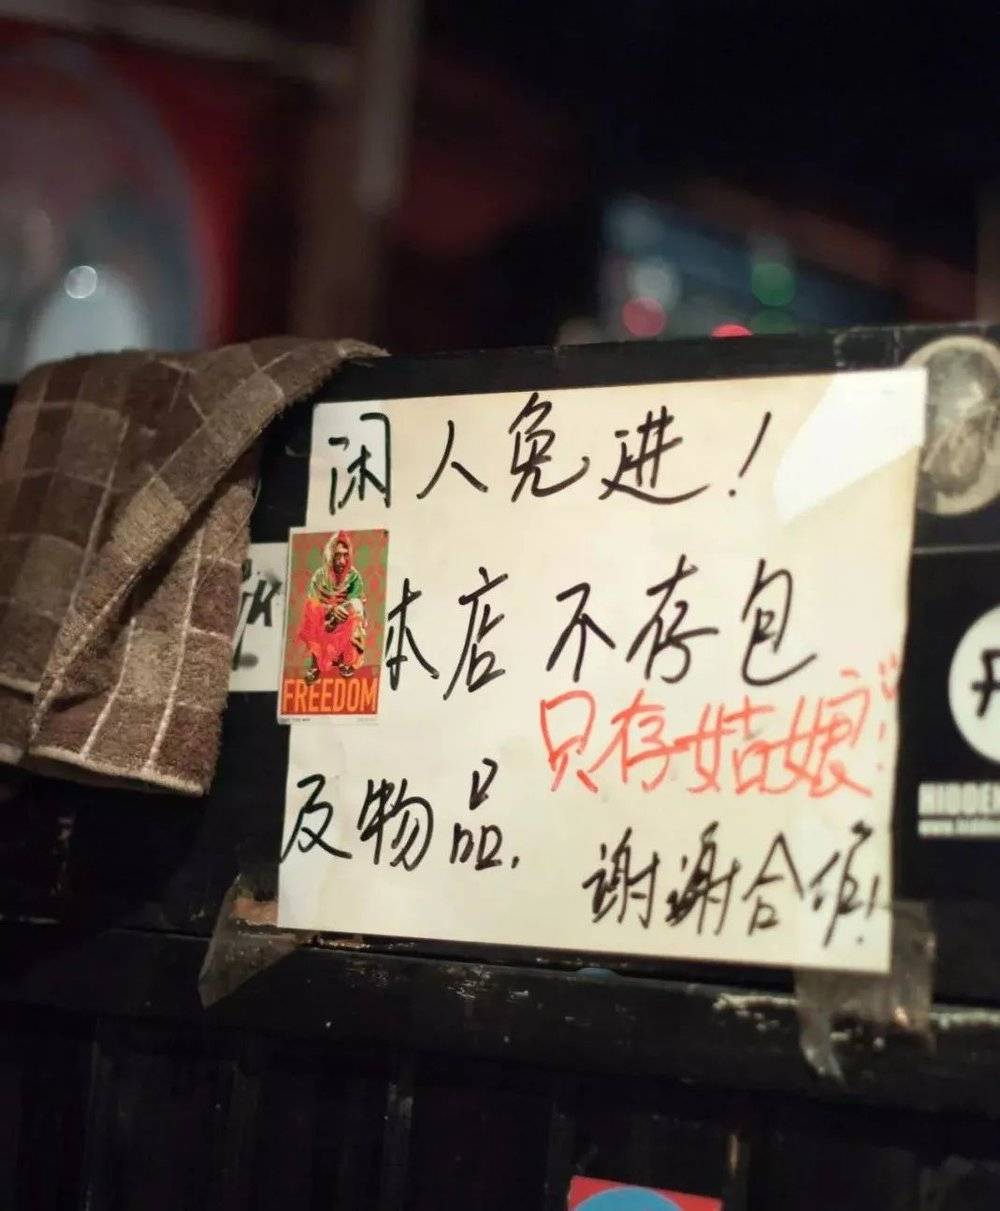 闲人免进！
本店不存包
只存姑娘！
及物品.
谢谢合作！
FREEDOM
HIDDEN